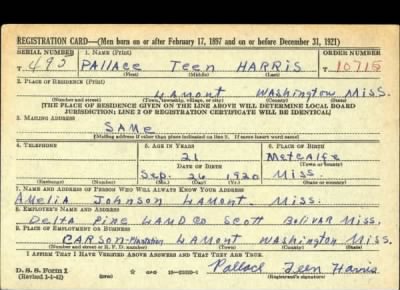 REGISTRATION CARD—(Men born on or after February 17, 1897 and on or before December 31, 1921)
SERIAL NUMBER 1. NAME (Print) ORDER NUMBER
T. 490 PALLACE TEEN HARRIS T. 10715
(First) (Middle) (Last)
2. PLACE OF RESIDENCE (Print)
LAMONT WASHINGTON MISS.
(Number and street) (Town, township, village, or city) (County) (State)
[THE PLACE OF RESIDENCE GIVEN ON THE LINE ABOVE WILL DETERMINE LOCAL BOARD
JURISDICTION; LINE 2 OF REGISTRATION CERTIFICATE WILL BE IDENTICAL]
3. MAILING ADDRESS
SAME
[Mailing address if other than place indicated on line 2. If same insert word same]
4. TELEPHONE 5. AGE IN YEARS 6. PLACE OF BIRTH
21 METCALFE
DATE OF BIRTH (Town or county)
Sep. 26 1920 MISS.
(Exchange) (Number) (Mo.) (Day) (Yr.) (State or country)
7. NAME AND ADDRESS OF PERSON WHO WILL ALWAYS KNOW YOUR ADDRESS
AMELIA JOHNSON LAMONT. MISS.
8. EMPLOYER'S NAME AND ADDRESS
DELTA PINE LAND CO SCOTT BOLIVAR MISS.
9. PLACE OF EMPLOYMENT OR BUSINESS
CARSON-Plantation LAMONT WASHINGTON MISS.
(Number and street or R. F. D. number) (Town) (County) (State)
I AFFIRM THAT I HAVE VERIFIED ABOVE ANSWERS AND THAT THEY ARE TRUE.
D. S. S. Form 1
(Revised 1-1-42) Pallace Teen Harris
(Registrant's signature)